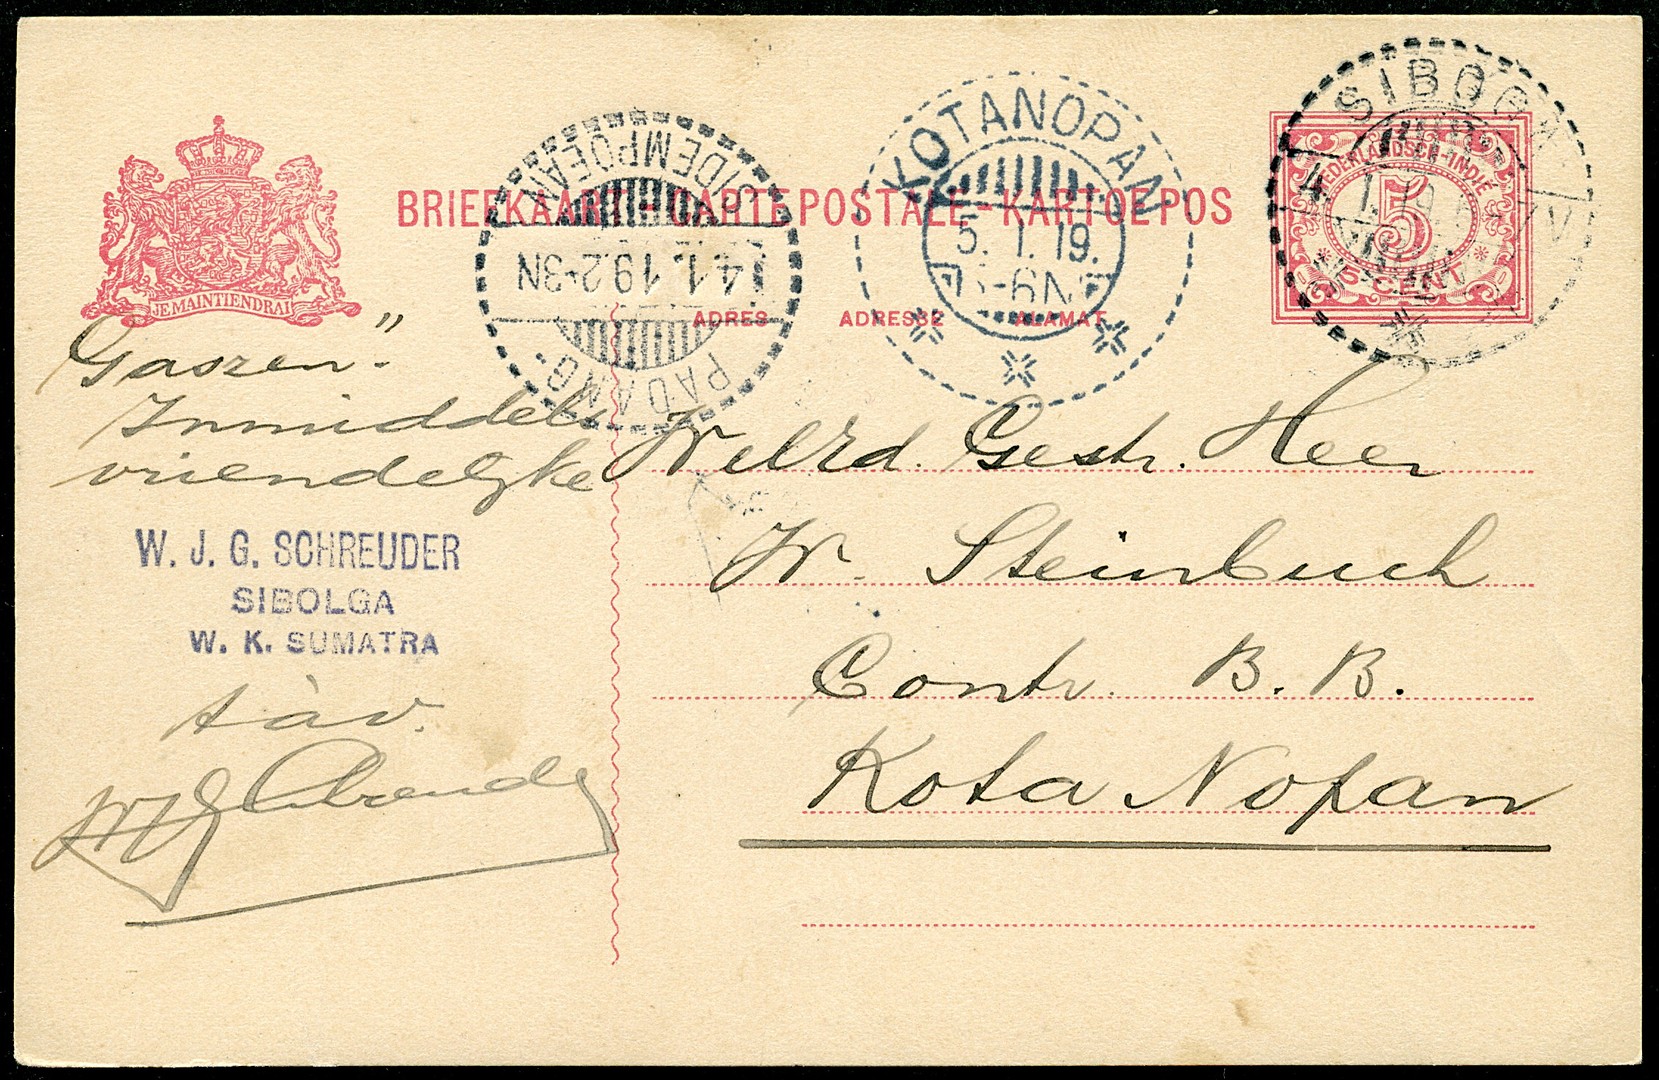 BRIEFKAART - CARTE POSTALE - KARTOEPOS
JE MAINTIENDRAI
ADRES ADRESSE ALAMAT
NEDERLANDSCH-INDIE
5
5 CENT
SIBOGA
4. 1. 19
KOTANOPAN
5. 1. 19.
-6N
PADANG-
4.1.19.2-3N
SIDEMPOEAN
"
Inmiddels
vriendelyke
W. J. G. SCHREUDER
SIBOLGA
W. K. SUMATRA
tàv.
WJGSchreuder
WelEd. Gestr. Heer
W. Steinbuch
Contr. B. B.
Kota Nopan